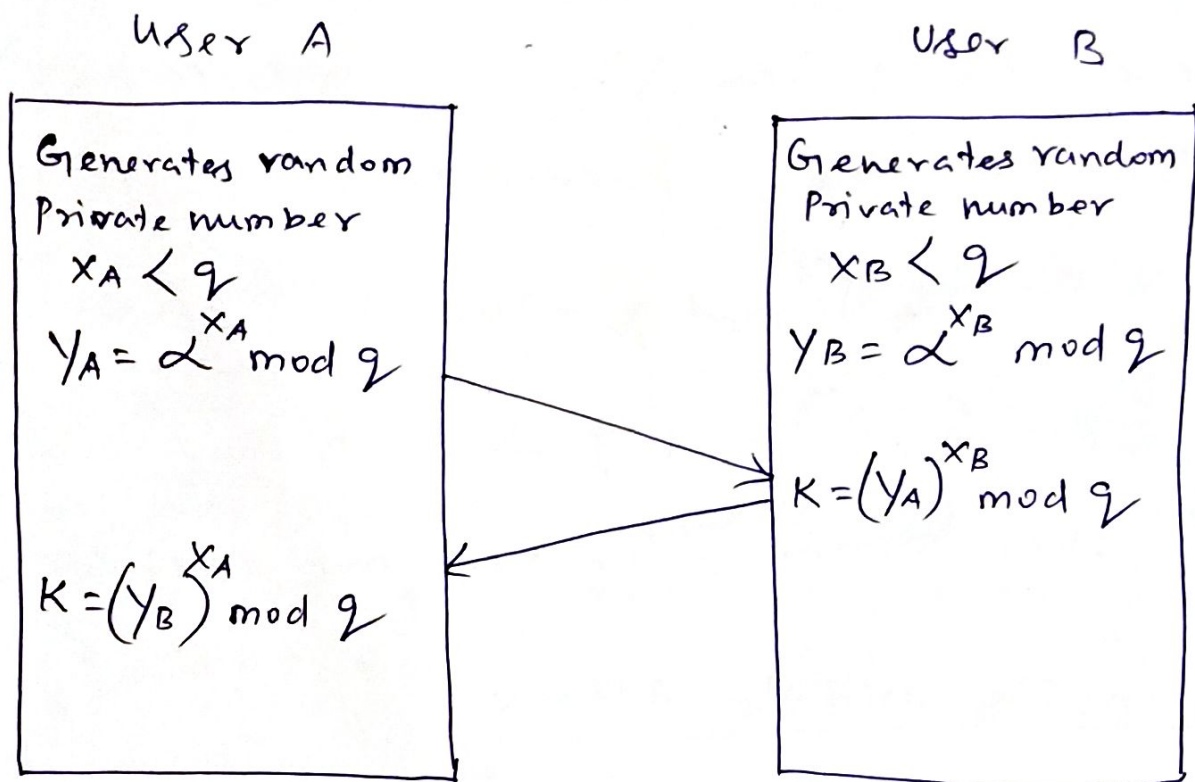 User A
User B
Generates random
Private number
X_A < q
Y_A = α^{X_A} mod q
K = (Y_B)^{X_A} mod q
Generates random
Private number
X_B < q
Y_B = α^{X_B} mod q
K = (Y_A)^{X_B} mod q